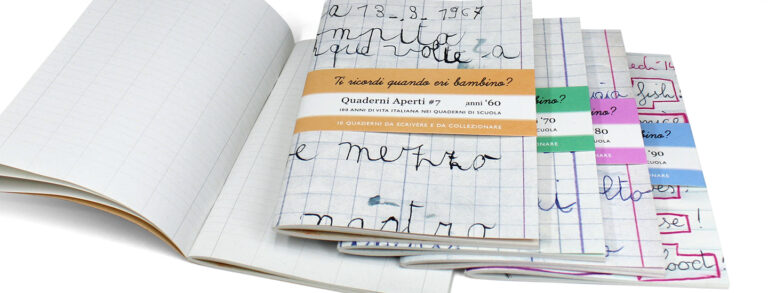 a 13-8-1967
mpito
que volte a
Ti ricordi quando eri bambino?
Quaderni Aperti #7 anni '60
100 ANNI DI VITA ITALIANA NEI QUADERNI DI SCUOLA
10 QUADERNI DA SCRIVERE E DA COLLEZIONARE
e mezzo
nastro
mbino?
'70
SCUOLA
ZIONARE
mbino?
80
SCUOLA
NARE
lto
edì 14
fish!
bino?
'90
SCUOLA
NARE
es!
se!
lood!